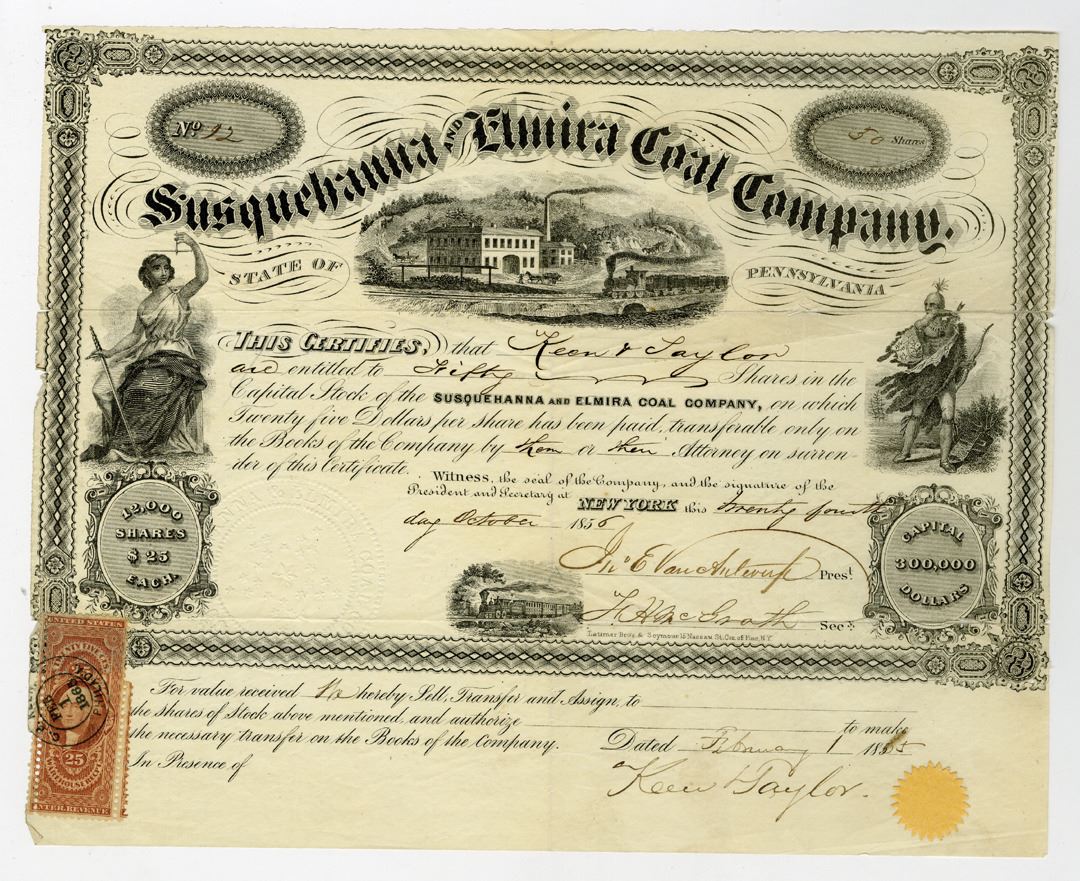 No 12
50 Shares
Susquehanna AND Elmira Coal Company.
STATE OF PENNSYLVANIA
THIS CERTIFIES, that Keen & Taylor
are entitled to Fifty Shares in the
Capital Stock of the SUSQUEHANNA AND ELMIRA COAL COMPANY, on which
Twenty five Dollars per share has been paid, transferable only on
the Books of the Company by them or their Attorney on surren-
der of this Certificate.
Witness, the seal of the Company, and the signature of the
President and Secretary at NEW YORK this twenty fourth
day October 1856
12,000
SHARES
$ 25
EACH.
CAPITAL
300,000
DOLLARS
Jn° E Van Antwerp Prest
F. H. McGrath Secy
Latimer Bros. & Seymour 15 Nassau St. Cor. of Pine, N.Y.
UNITED STATES
25
INTER. REVENUE
FEB
1
1865
For value received We hereby Sell, Transfer and Assign, to
the shares of Stock above mentioned, and authorize to make
the necessary transfer on the Books of the Company.
Dated February 1 1865
In Presence of
Keen & Taylor.